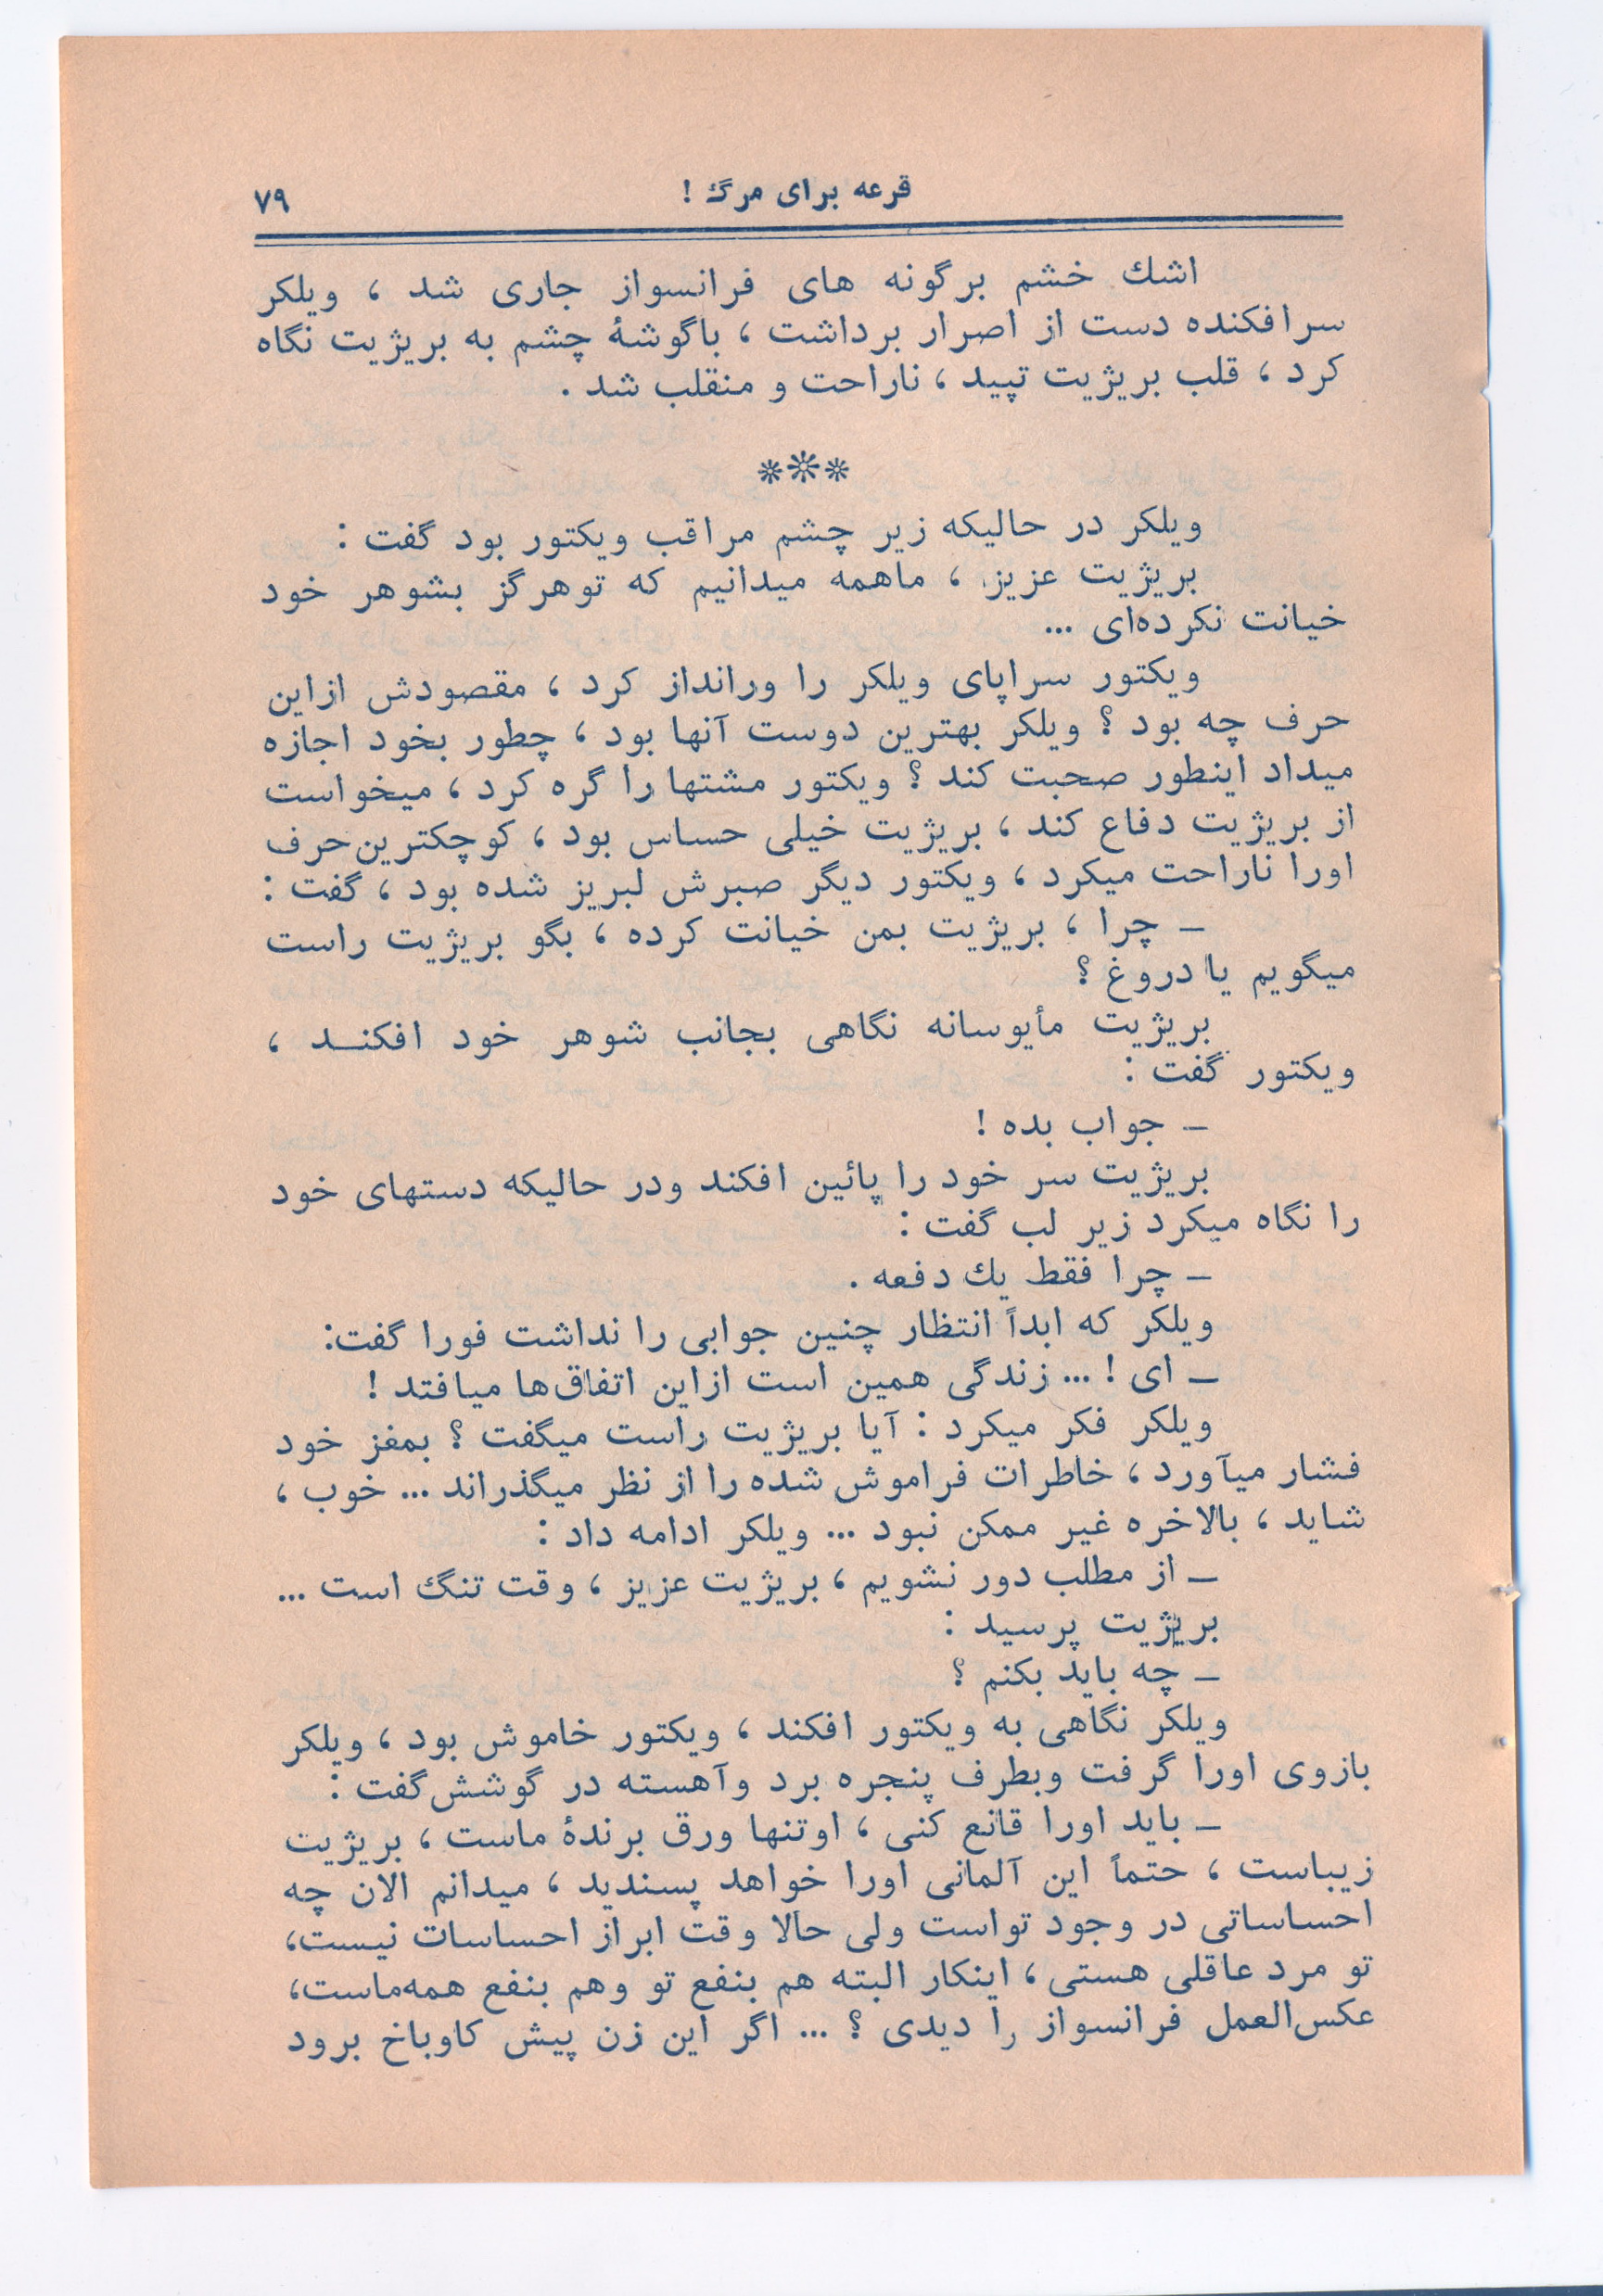 قرعه برای مرگ !
۷۹
اشك خشم برگونه های فرانسواز جاری شد ، ویلکر
سرافکنده دست از اصرار برداشت ، باگوشهٔ چشم به بریژیت نگاه
کرد ، قلب بریژیت تپید ، ناراحت و منقلب شد .
***
ویلکر در حالیکه زیر چشم مراقب ویکتور بود گفت :
بریژیت عزیز ، ماهمه میدانیم که توهرگز بشوهر خود
خیانت نکرده‌ای ...
ویکتور سراپای ویلکر را ورانداز کرد ، مقصودش ازاین
حرف چه بود ؟ ویلکر بهترین دوست آنها بود ، چطور بخود اجازه
میداد اینطور صحبت کند ؟ ویکتور مشتها را گره کرد ، میخواست
از بریژیت دفاع کند ، بریژیت خیلی حساس بود ، کوچکترین‌حرف
اورا ناراحت میکرد ، ویکتور دیگر صبرش لبریز شده بود ، گفت :
– چرا ، بریژیت بمن خیانت کرده ، بگو بریژیت راست
میگویم یا دروغ ؟
بریژیت مأیوسانه نگاهی بجانب شوهر خود افکنـد ،
ویکتور گفت :
– جواب بده !
بریژیت سر خود را پائین افکند ودر حالیکه دستهای خود
را نگاه میکرد زیر لب گفت :
– چرا فقط یك دفعه .
ویلکر که ابداً انتظار چنین جوابی را نداشت فورا گفت:
– ای ! ... زندگی همین است ازاین اتفاق‌ها میافتد !
ویلکر فکر میکرد : آیا بریژیت راست میگفت ؟ بمغز خود
فشار میآورد ، خاطرات فراموش شده را از نظر میگذراند ... خوب ،
شاید ، بالاخره غیر ممکن نبود ... ویلکر ادامه داد :
– از مطلب دور نشویم ، بریژیت عزیز ، وقت تنگ است ...
بریژیت پرسید :
– چه باید بکنم ؟
ویلکر نگاهی به ویکتور افکند ، ویکتور خاموش بود ، ویلکر
بازوی اورا گرفت وبطرف پنجره برد وآهسته در گوشش گفت :
– باید اورا قانع کنی ، اوتنها ورق برندهٔ ماست ، بریژیت
زیباست ، حتماً این آلمانی اورا خواهد پسندید ، میدانم الان چه
احساساتی در وجود تواست ولی حالا وقت ابراز احساسات نیست،
تو مرد عاقلی هستی ، اینکار البته هم بنفع تو وهم بنفع همه‌ماست،
عکس‌العمل فرانسواز را دیدی ؟ ... اگر این زن پیش کاوباخ برود